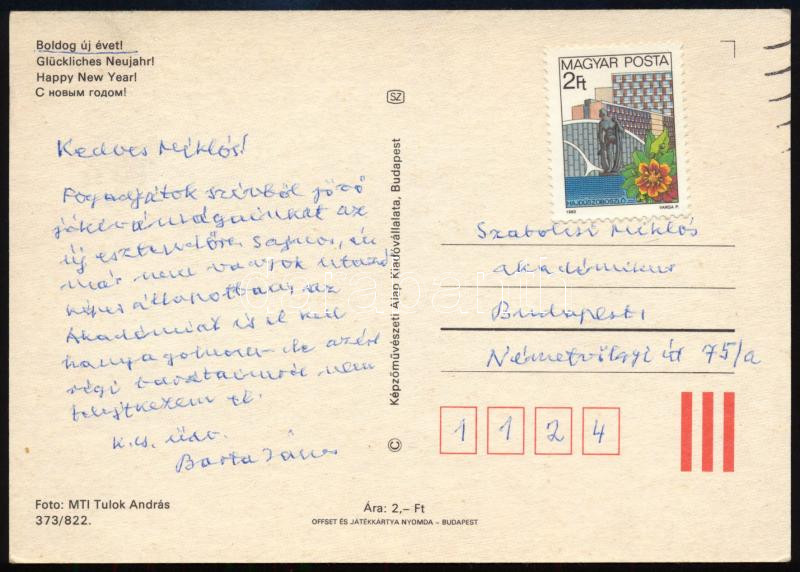 Boldog új évet!
Glückliches Neujahr!
Happy New Year!
С новым годом!
Kedves Miklós!
Fogadjátok szívből jövő
jókívánságainkat az
új esztendőre. Sajnos, én
már nem vagyok utazó
képes állapotban, az
Akadémiát is el kell
hanyagolnom – de azért
régi barátaimról nem
felejtkezem el.
K. cs. üdv.
Barta János
Foto: MTI Tulok András
373/822.
SZ
© Képzőművészeti Alap Kiadóvállalata, Budapest
Ára: 2,– Ft
OFFSET ÉS JÁTÉKKÁRTYA NYOMDA – BUDAPEST
MAGYAR POSTA
2Ft
HAJDÚSZOBOSZLÓ
1983 VARGA P.
Szabolcsi Miklós
akadémikus
Budapest
Németvölgyi út 75/a
1 1 2 4
darabanth